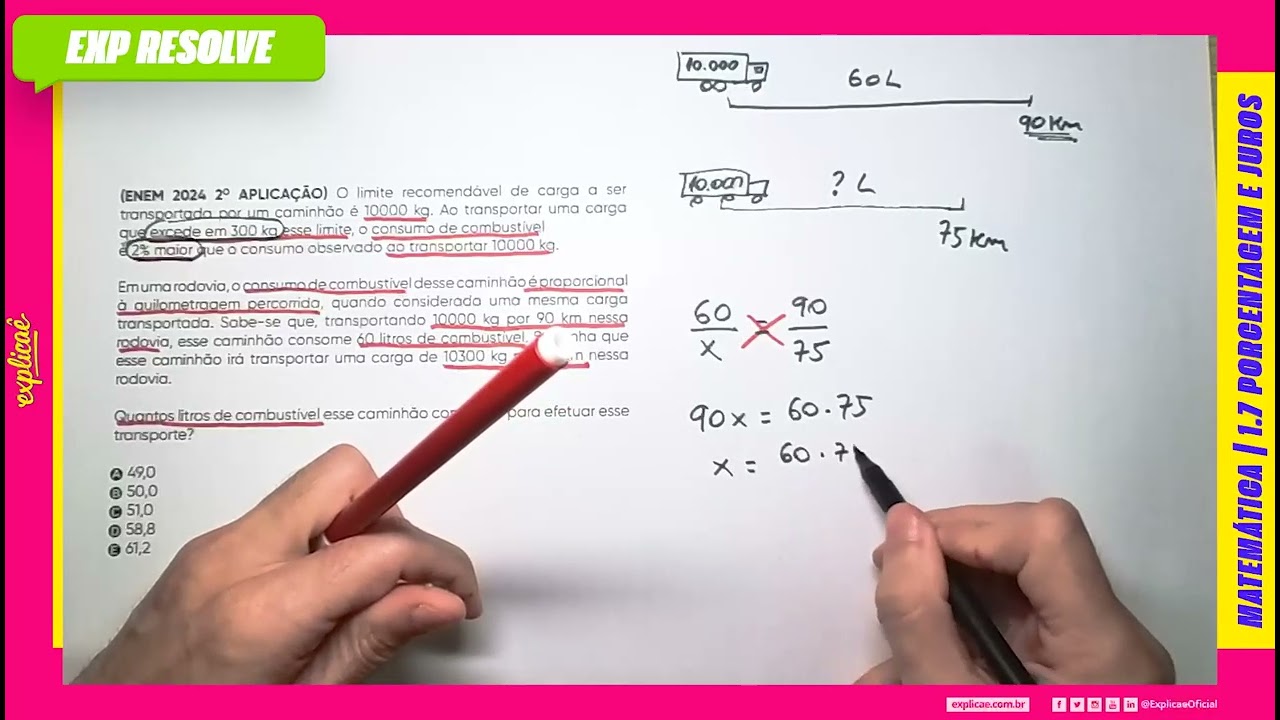 EXP RESOLVE
explicaê
(ENEM 2024 2º APLICAÇÃO) O limite recomendável de carga a ser
transportada por um caminhão é 10000 kg. Ao transportar uma carga
que excede em 300 kg esse limite, o consumo de combustível
é 2% maior que o consumo observado ao transportar 10000 kg.
Em uma rodovia, o consumo de combustível desse caminhão é proporcional
à quilometragem percorrida, quando considerada uma mesma carga
transportada. Sabe-se que, transportando 10000 kg por 90 km nessa
rodovia, esse caminhão consome 60 litros de combustível. que
esse caminhão irá transportar uma carga de 10300 kg nessa
rodovia.
Quantos litros de combustível esse caminhão para efetuar esse
transporte?
A 49,0
B 50,0
C 51,0
D 58,8
E 61,2
10.000
60L
90 Km
10.000
? L
75 Km
60 = 90
x 75
90x = 60.75
x = 60.7
MATEMÁTICA | 1.7 PORCENTAGEM E JUROS
explicae.com.br
@ExplicaeOficial